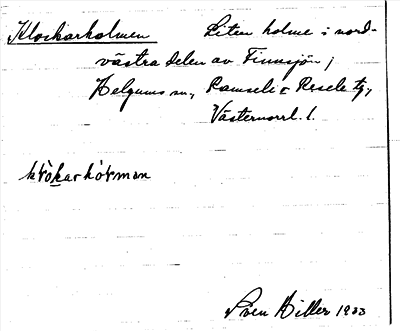 Klockarholmen Liten holme i nord-
västra delen av Finnsjön i
Helgums sn, Ramsele o Resele tg,
Västernorrl. l.
Sven Hiller 1933